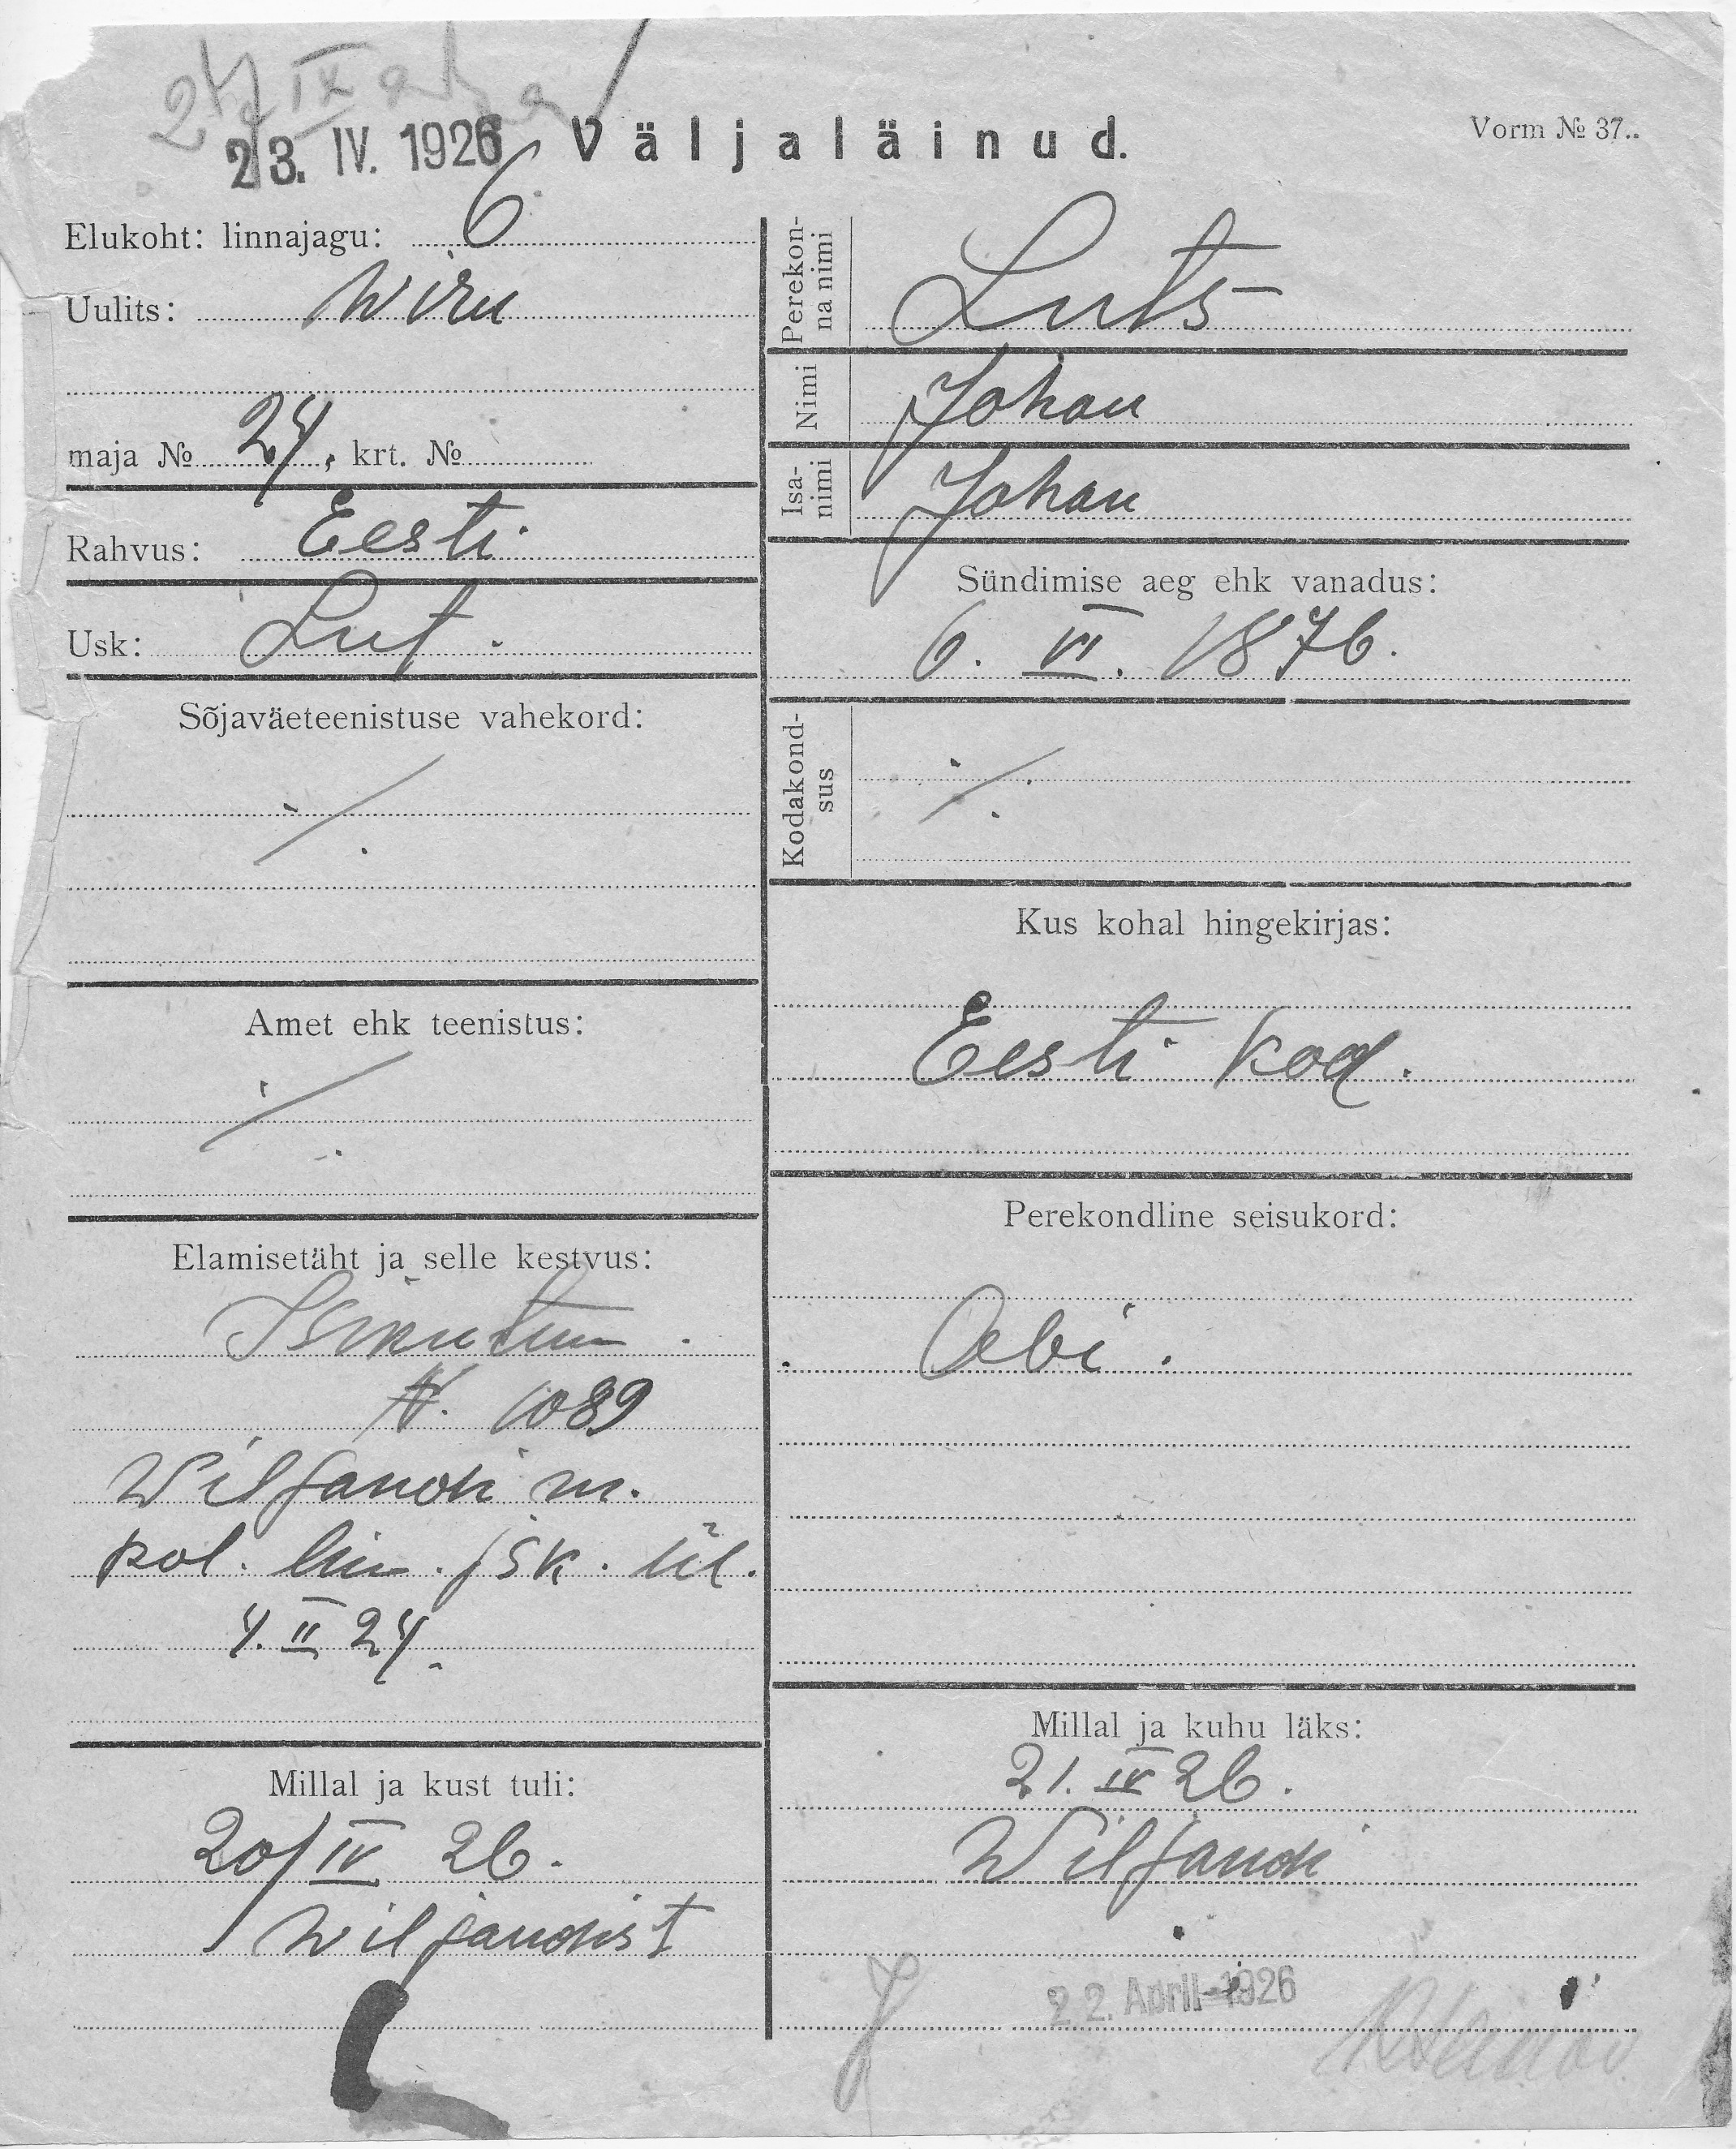 23. IV. 1926
Väljaläinud.
Vorm № 37..
Elukoht: linnajagu: 6
Uulits: Wiru
maja № 24, krt. №
Rahvus: Eesti
Usk: Lut.
Sõjaväeteenistuse vahekord:
./.
Amet ehk teenistus:
./.
Elamisetäht ja selle kestvus:
Isikutun
N. 1089
Wiljandi m.
pol. lin. jsk. ül.
4. II 24.
Millal ja kust tuli:
20/IV 26.
Wiljandist
Perekon-
na nimi
Luts
Nimi
Johan
Isa-
nimi
Johan
Sündimise aeg ehk vanadus:
6. VI. 1876.
Kodakond-
sus
./.
Kus kohal hingekirjas:
Eesti kod.
Perekondline seisukord:
Abi.
Millal ja kuhu läks:
21. IV 26.
Wiljandi
22. April 1926